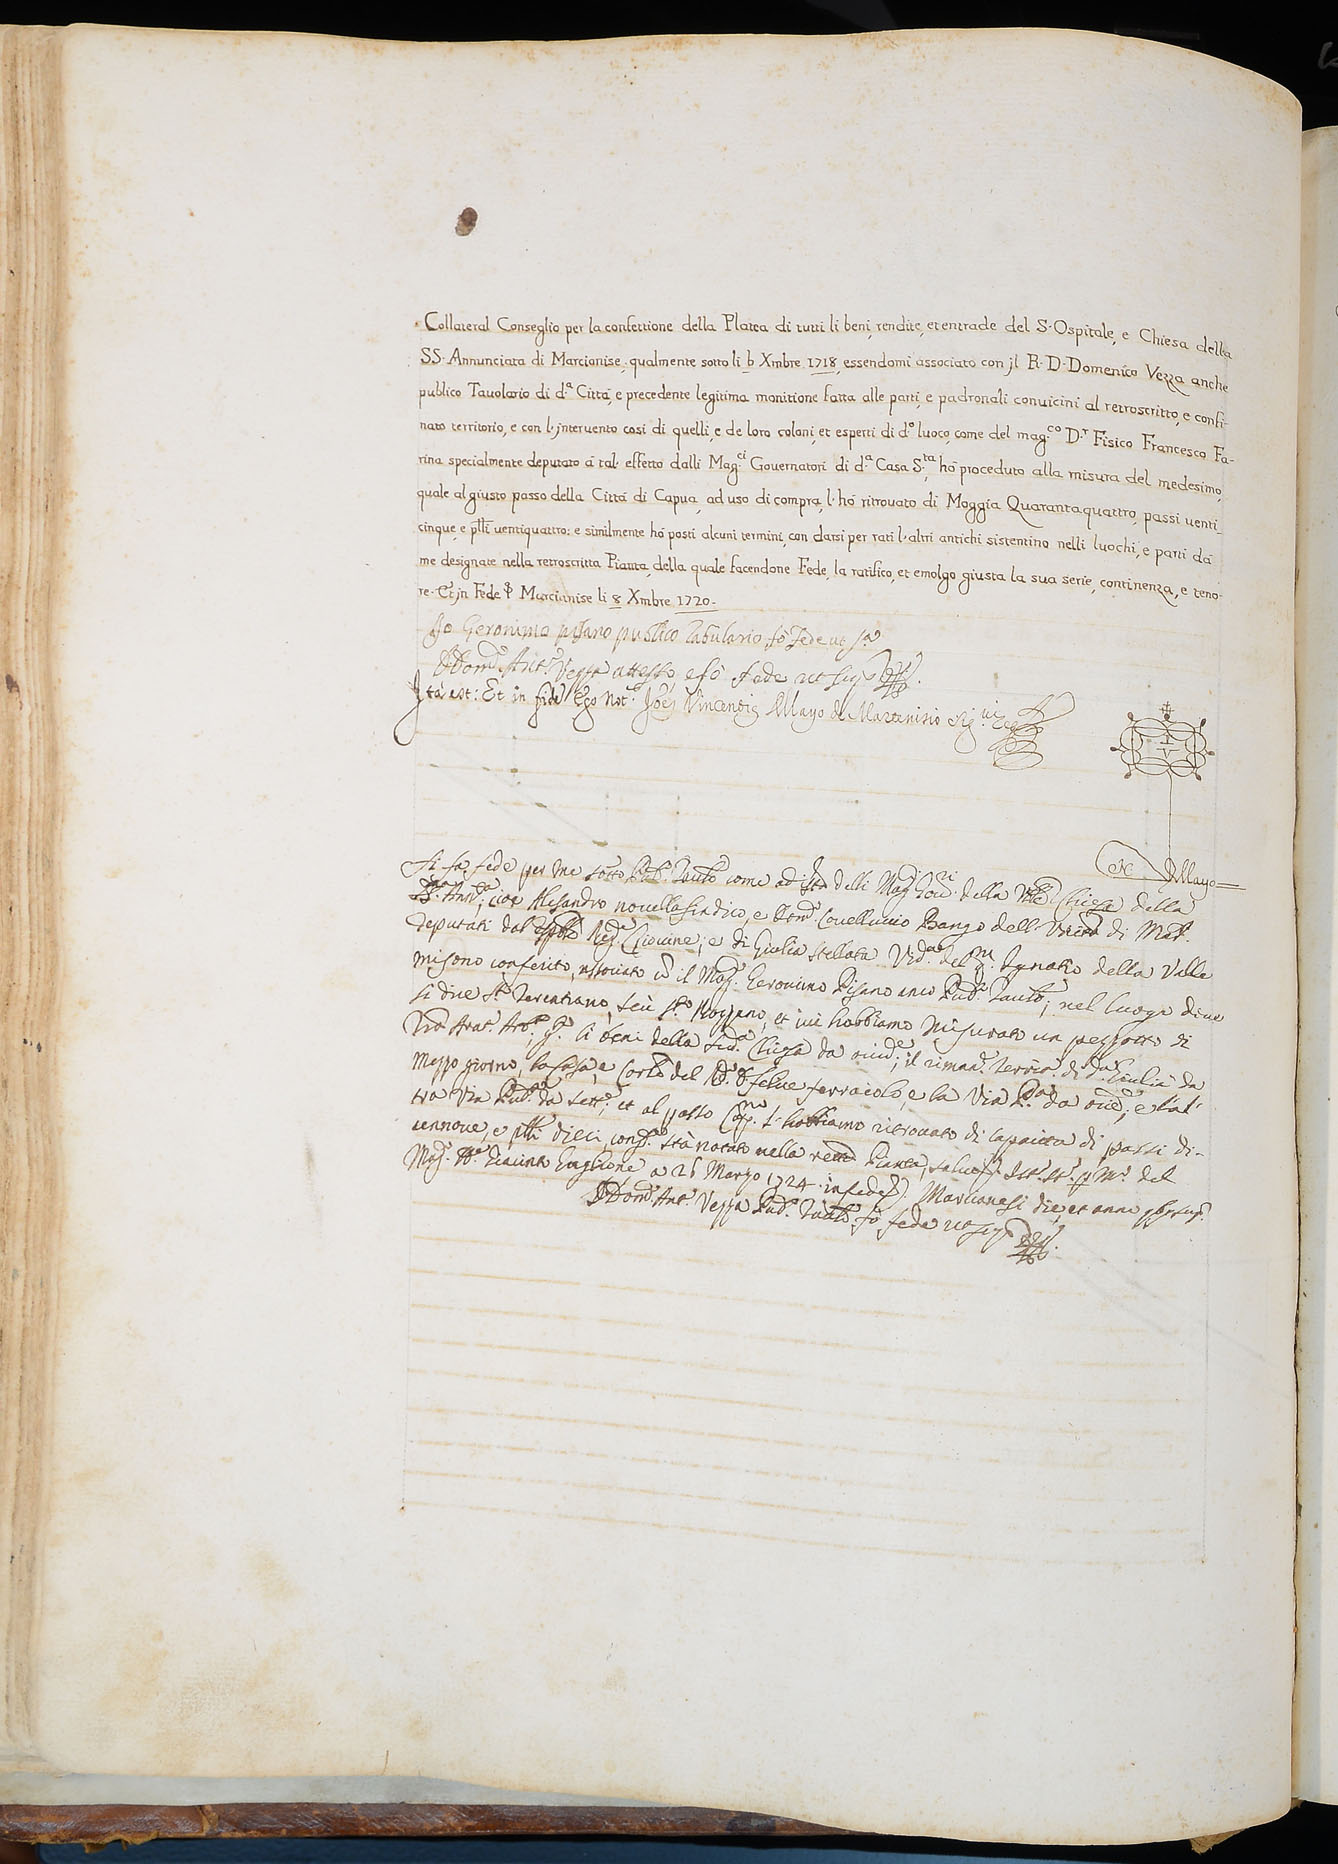 Collateral Conseglio per la confettione della Platea di tutti li beni, rendite, et entrade del S. Ospitale, e Chiesa della
SS. Annunciata di Marcianise, qualmente sotto li b Xmbre 1718, essendomi associato con jl R. D. Domenico Vezza anche
publico Tauolario di d.ª Cittá, e precedente legitima monitione fatta alle parti, e padronali conuicini al retroscritto, e confi-
nato territorio, e con l'jnteruento cosi di quelli, e de loro coloni, et esperti di d.º luoco, come del mag.co D.r Fisico Francesco Fa-
rina specialmente deputato á tal' effetto dalli Mag.ci Gouernatori di d.ª Casa S.ta, hó proceduto alla misura del medesimo,
quale al giusto passo della Cittá di Capua, ad uso di compra, l'hó ritrouato di Moggia Quarantaquattro, passi uenti
cinque, e p̅lli uentiquattro: e similmente hó posti alcuni termini, con darsi per rati l'altri antichi sistentino nelli luochi, e parti dá
me designate nella retroscritta Pianta, della quale facendone Fede, la ratifico, et emolgo giusta la sua serie, continenza, e teno-
re. Et jn Fede Marcianise li 8 Xmbre 1720.
Jo Geronimo pisano publico Tabulario fó Fede ut s.ª
D Dom.º Ant.º Vezza attesto, e fó fede ut sup.ª
Ita est: Et in fidē Ego Not. Joēs Vincentiō Mayo de Martinisio sig.ui
I V
N Mayo
Si fa fede per me sotto Pub.º Tauł.º come ad delli Mag.ci Gou.ri della Chiesa della
SS. Ann.ta, cioe Alesandro nouella sindico, e Dom.º Couelluccio
deputati dal Chiouine; e di Giulia Stellata Vid.ª del q.m Ignatio della Valle
mi sono conferito, associato cō il Mag.co Geronimo Pisano anco Pub.º Tauł.º; nel luogo doue
si dice S.º Terentiano, seù S.º, et iui habbiamo misurato un pezzotto di
li beni della sud.ª Chiesa da; il riman.te terr.io di d.ª Giulia da
mezzo giorno, la casa, e Cortē del R.do D. felice ferraiolo, e la Via P.ca da; e l'al-
tra Via Pub.ca da sett.e, et al passo Cap.no l'habbiamo ritrouato di capacita di passi di-
cennoue, e p̅lli dieci, conf.e stà notato nella Pianta, saluo del
Mag.co Giacinto a 26 Marzo 1724. in fede. Marcianesi die, et anno
D Dom.º Ant.º Vezza Pub.º Tauł.º fó fede ut sup.ª